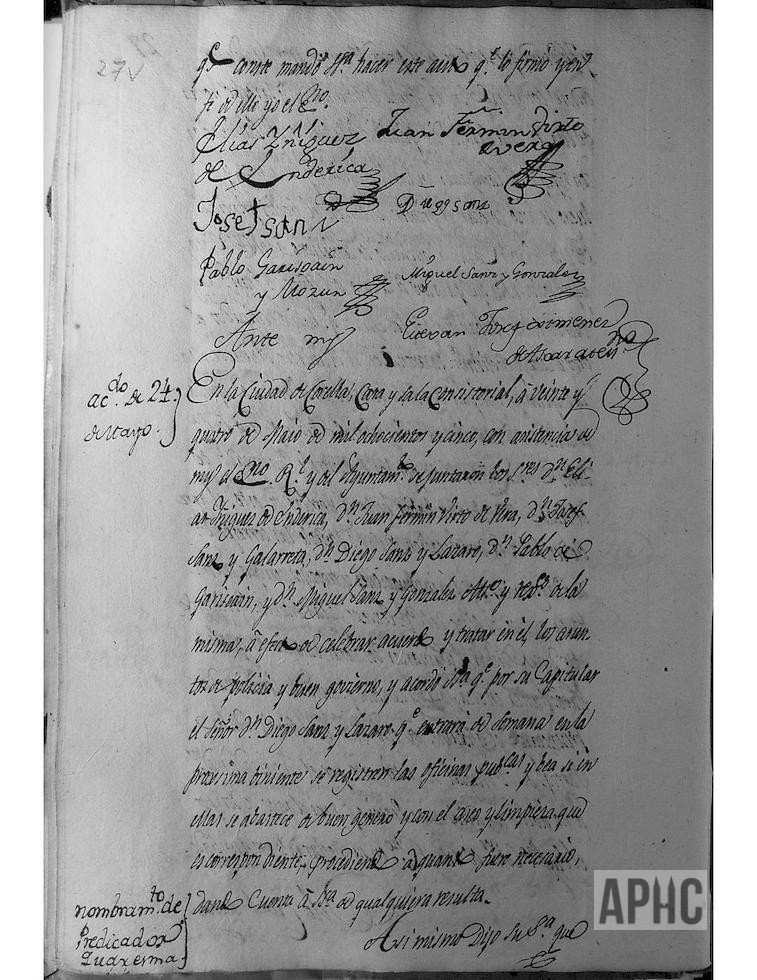 27v
qe conste mandó Sra hacer este auto qe lo firmó y en
fe de ello yo el Eno.
Elias Yñiguez
de Enderica
Juan Fermin Virto
de vera
Josef sanz
Diego sanz
Pablo Garisoain
y Mozun
Miguel Sanz y Gonzalez
Ante mi
Estevan Josef ximenez
acdo. de 24
de Mayo.
En la Ciudad de Corella, Casa y sala Consistorial, á veinte y
quatro de Maio de mil ochocientos y cinco, con asistencia de
my el Eno. Rl. y del Ayuntamto. se juntaron los Sres. dn. Eli-
as Yñiguez de Enderica, dn. Juan fermin Virto de Vera, dn. Josef
Sanz y Galarreta, dn. Diego Sanz y Lazaro, dn. Pablo de
Garisoain, y dn. Miguel Sanz y Gonzalez Alcs. y regs. de la
misma, á efecto de celebrar acuerdo y tratar en él, los asun-
tos de policia y buen govierno, y acordó Sra qe por su Capitular
el señor dn. Diego Sanz y Lazaro qe entrará de semana en la
procsima biniente se registren las oficinas pubcas y bea si en
ellas se abastece de buen genero y con el aseo y limpieza que
es correspondiente, procediendo á quanto fuere necesario,
dando Cuenta á Sra de qualquiera resulta.
nombramto. de
Predicador
Quaresma
Asi mismo Dijo su Sra que
APHC